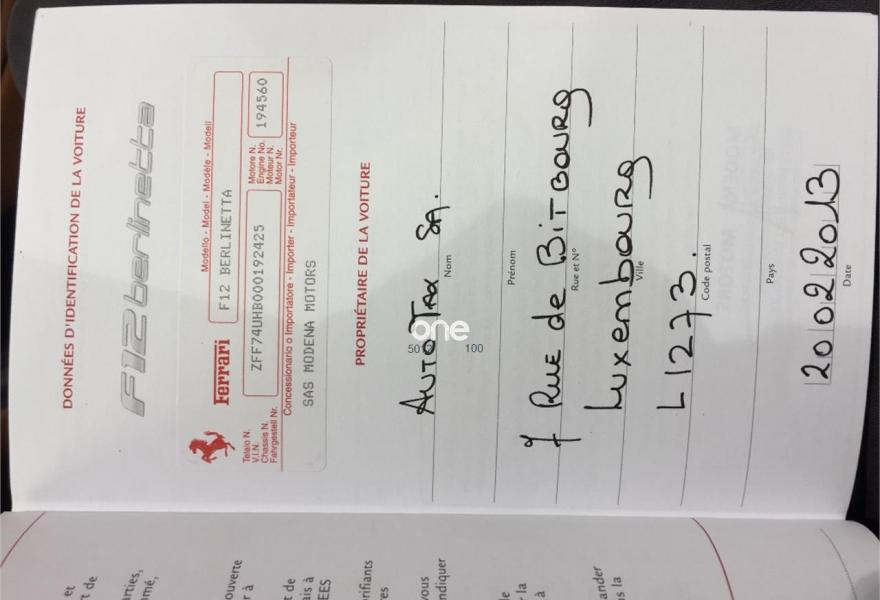 DONNÉES D'IDENTIFICATION DE LA VOITURE
F12berlinetta
Ferrari
Modello - Model - Modèle - Modell
F12 BERLINETTA
Telaio N.
V.I.N.
Chassis N.
Fahrgestell Nr.
ZFF74UHB000192425
Motore N.
Engine No.
Moteur N.
Motor Nr.
194560
Concessionario o Importatore - Importer - Importateur - Importeur
SAS MODENA MOTORS
PROPRIÉTAIRE DE LA VOITURE
AUTO TRAX SA.
Nom
Prénom
7 RUE de BITBOURG
Rue et N°
Luxembourg
Ville
L1273.
Code postal
Pays
20022013
Date
one
100
et
t de
arties,
mmé,
ouverte
r à
t de
ais à
EES
rifiants
res
vous
ndiquer
le
r la
à
ander
ns la